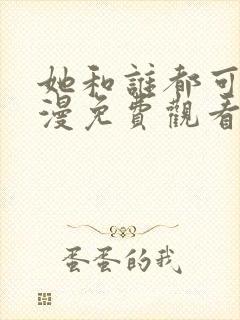 她和誰都可
漫免費觀看
蛋蛋的我